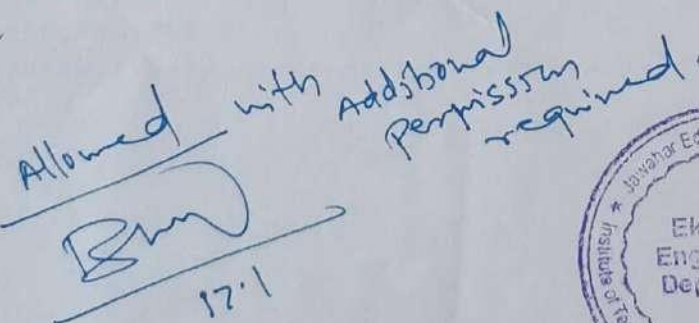 Allowed with Additional
Permission
required.
17.1
Jawahar Ed
Institute of Te
Ele
Eng
Dep